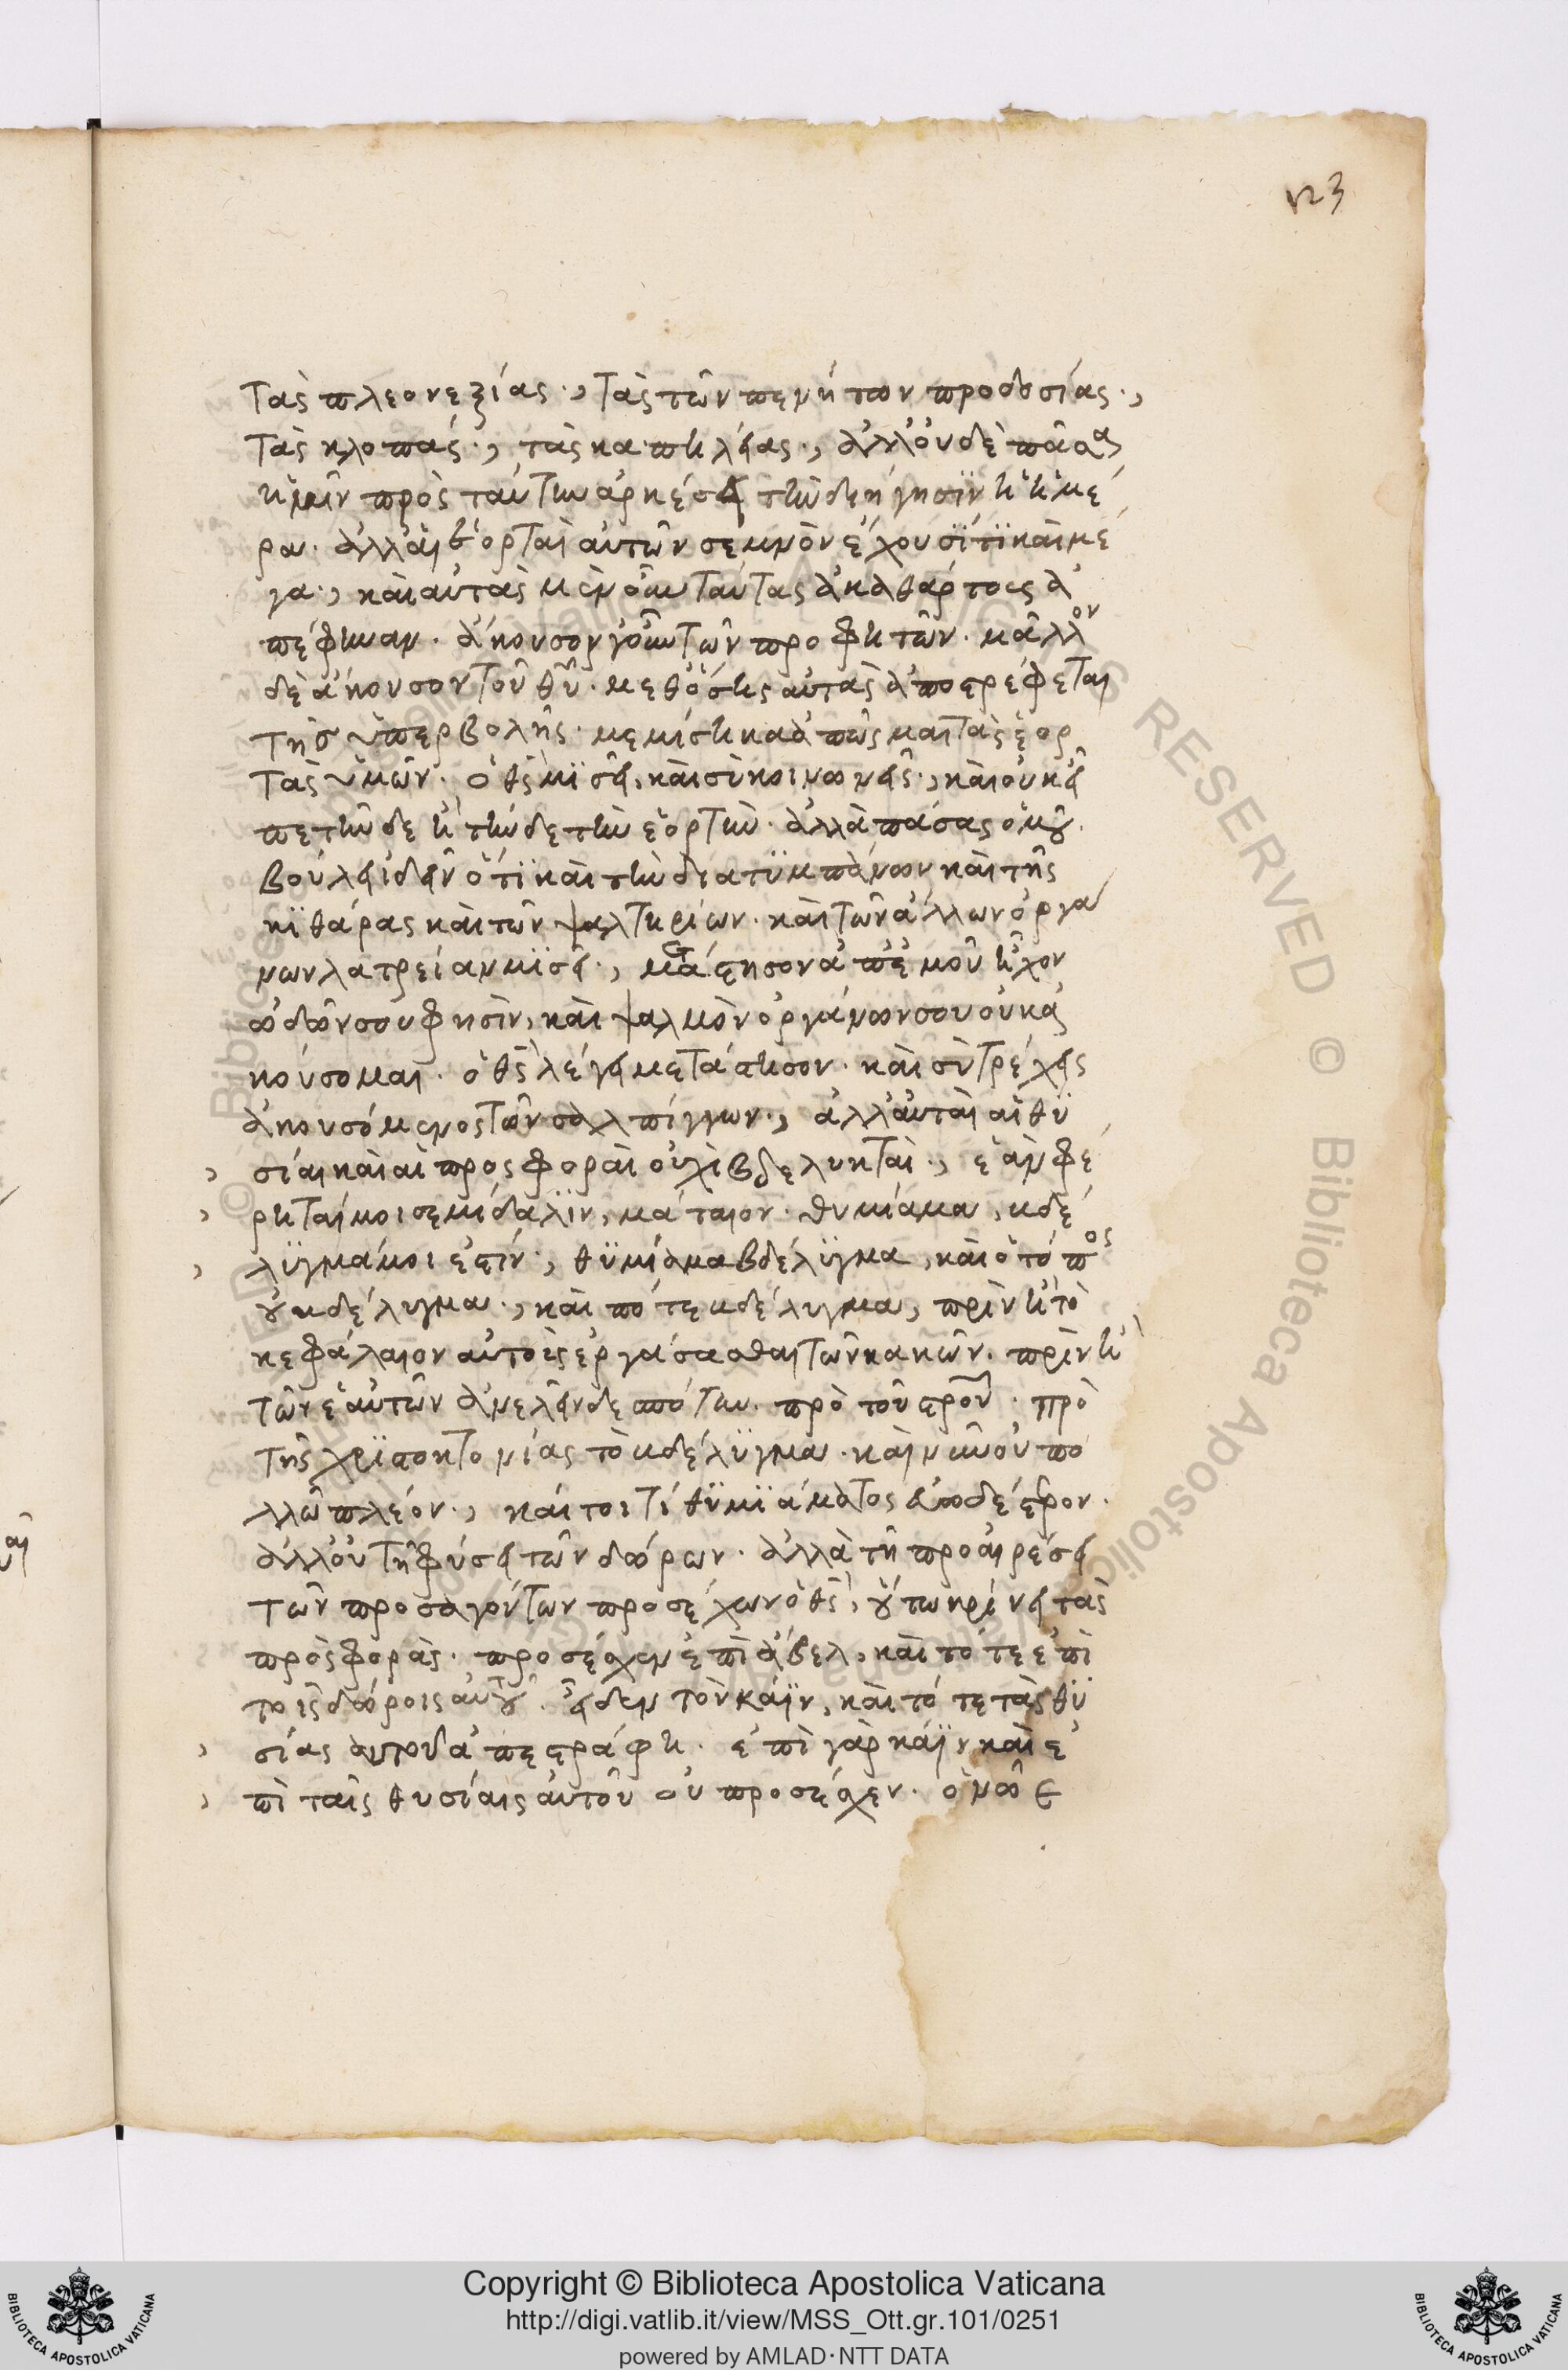 123
τὰς πλεονεξίας·, τὰς τῶν πενήτων προδοσίας·,
τὰς κλοπάς·, τὰς καπηλείας·, ἀλλ' οὐδὲ πᾶσα
ἡμῖν πρὸς ταύτην ἀρκέσει τὴν διήγησϊν ἡ ἡμέ
ρα. ἀλλ' αἱ ἑορταὶ αὐτῶν σεμνὸν ἔχουσϊ τϊ καὶ μέ
γα·, καὶ αὐτὰς μὲν οὖν ταύτας ἀκαθάρτους ἀ
πέφηναν. ἄκουσον γοῦν τῶν προφητῶν. μᾶλλον
δὲ ἄκουσον τοῦ θῦ. μεθ' ὅσης αὐτὰς ἀποστρέφεται
τῆς ὑπερβολῆς. μεμίσηκα ἀπῶσμαι τὰς ἑορ
τὰς ὑμῶν. ὁ θς μϊσεῖ, καὶ σὺ κοινωνεῖς·, καὶ οὐκ εἶ
πε τήνδε ἢ τήνδε τὴν ἑορτὴν. ἀλλὰ πάσας ὁμοῦ.
βούλει ἰδεῖν ὅτϊ καὶ τὴν διὰ τϋμπάνων καὶ τῆς
κϊθάρας καὶ τῶν ψαλτηρίων. καὶ τῶν ἄλλων ὀργά
νων λατρείαν μϊσεῖ·, μετάστησον ἀπ' ἐμοῦ ἦχον
ὠδῶν σου φησὶν, καὶ ψαλμὸν ὀργάνων σου οὐκ ἀ
κούσομαι. ὁ θς λέγει μετάστησον. καὶ σὺ τρέχεις
ἀκουσόμενος τῶν σαλπίγγων·, ἀλλ' αὐταὶ αἱ θϋ
σίαι καὶ αἱ προσφοραὶ οὐχὶ βδελυκταὶ·, ἐὰν φέ
ρηταί μοι σεμίδαλϊν, μάταιον. θυμίαμα, βδέ
λϋγμά μοι ἐστίν·, θϋμίαμα βδέλϋγμα, καὶ ὁ τόπος
οὐ βδέλυγμα·, καὶ πότε βδέλυγμα, πρὶν ἢ τὸ
κεφάλαιον αὐτοὶς ἐργάσασθαι τῶν κακῶν. πρὶν ἢ
τῶν ἑαυτῶν ἀνελεῖν δεσπότην. πρὸ τοῦ στροῦ. πρὸ
τῆς χρϊστοκτονίας τὸ βδέλϋγμα. καὶ νῦν οὐ πο
λλῶ πλέον·, καίτοι τί θϋμϊάματος εὐωδέστερον.
ἀλλ' οὐ τῇ φύσει τῶν δώρων. ἀλλὰ τῇ προαιρέσει
τῶν προσαγόντων προσέχων ὁ θς, οὕτω κρίνει τὰς
προσφορὰς. προσέσχεν ἐπὶ ἄβελ, καὶ τότε ἐπὶ
τοῖς δώροις αὐτοῦ. εἶδεν τὸν κάϊν, καὶ τότε τὰς θϋ
σίας αὐτοῦ ἀπεστράφη. ἐπὶ γὰρ κάϊν καὶ ἐ
πὶ ταῖς θυσίαις αὐτοῦ οὐ προσέσχεν. ὁ νῶε
Copyright © Biblioteca Apostolica Vaticana
http://digi.vatlib.it/view/MSS_Ott.gr.101/0251
powered by AMLAD·NTT DATA